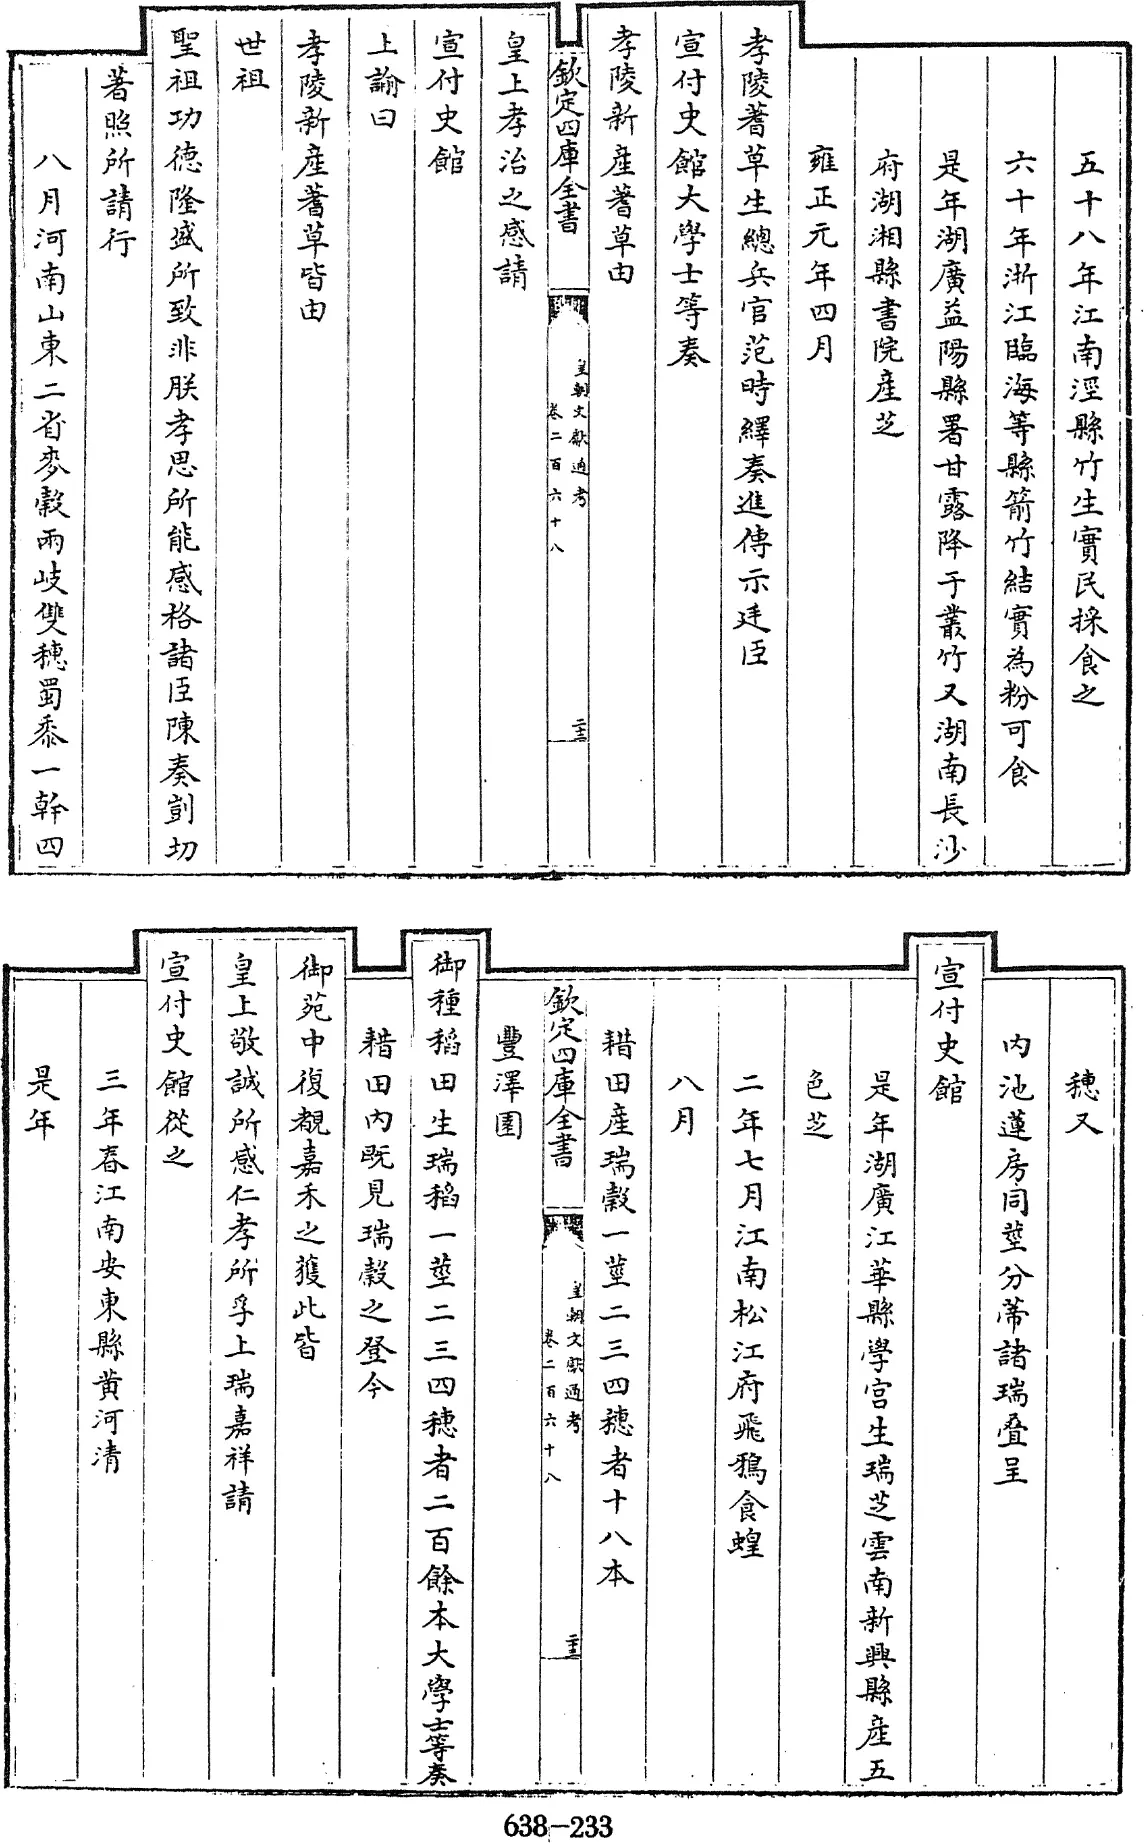 五十八年江南涇縣竹生實民採食之
六十年浙江臨海等縣箭竹結實為粉可食
是年湖廣益陽縣署甘露降于叢竹又湖南長沙
府湖湘縣書院産芝
雍正元年四月
孝陵蓍草生總兵官范時繹奏進傳示廷臣
宣付史館大學士等奏
孝陵新産蓍草由
欽定四庫全書
皇朝文獻通考
卷二百六十八
二十三
皇上孝治之感請
宣付史館
上諭曰
孝陵新産蓍草皆由
世祖
聖祖功德隆盛所致非朕孝思所能感格諸臣陳奏剴切
著照所請行
八月河南山東二省麥穀兩岐雙穗蜀黍一幹四
穗又
內池蓮房同莖分蒂諸瑞叠呈
宣付史館
是年湖廣江華縣學宫生瑞芝雲南新興縣産五
色芝
二年七月江南松江府飛鴉食蝗
八月
耤田産瑞穀一莖二三四穗者十八本
欽定四庫全書
皇朝文獻通考
卷二百六十八
二十三
豐澤園
御種稻田生瑞稻一莖二三四穗者二百餘本大學士等奏
耤田內既見瑞穀之登今
御苑中復覩嘉禾之獲此皆
皇上敬誠所感仁孝所孚上瑞嘉祥請
宣付史館從之
三年春江南安東縣黄河清
是年
638-233